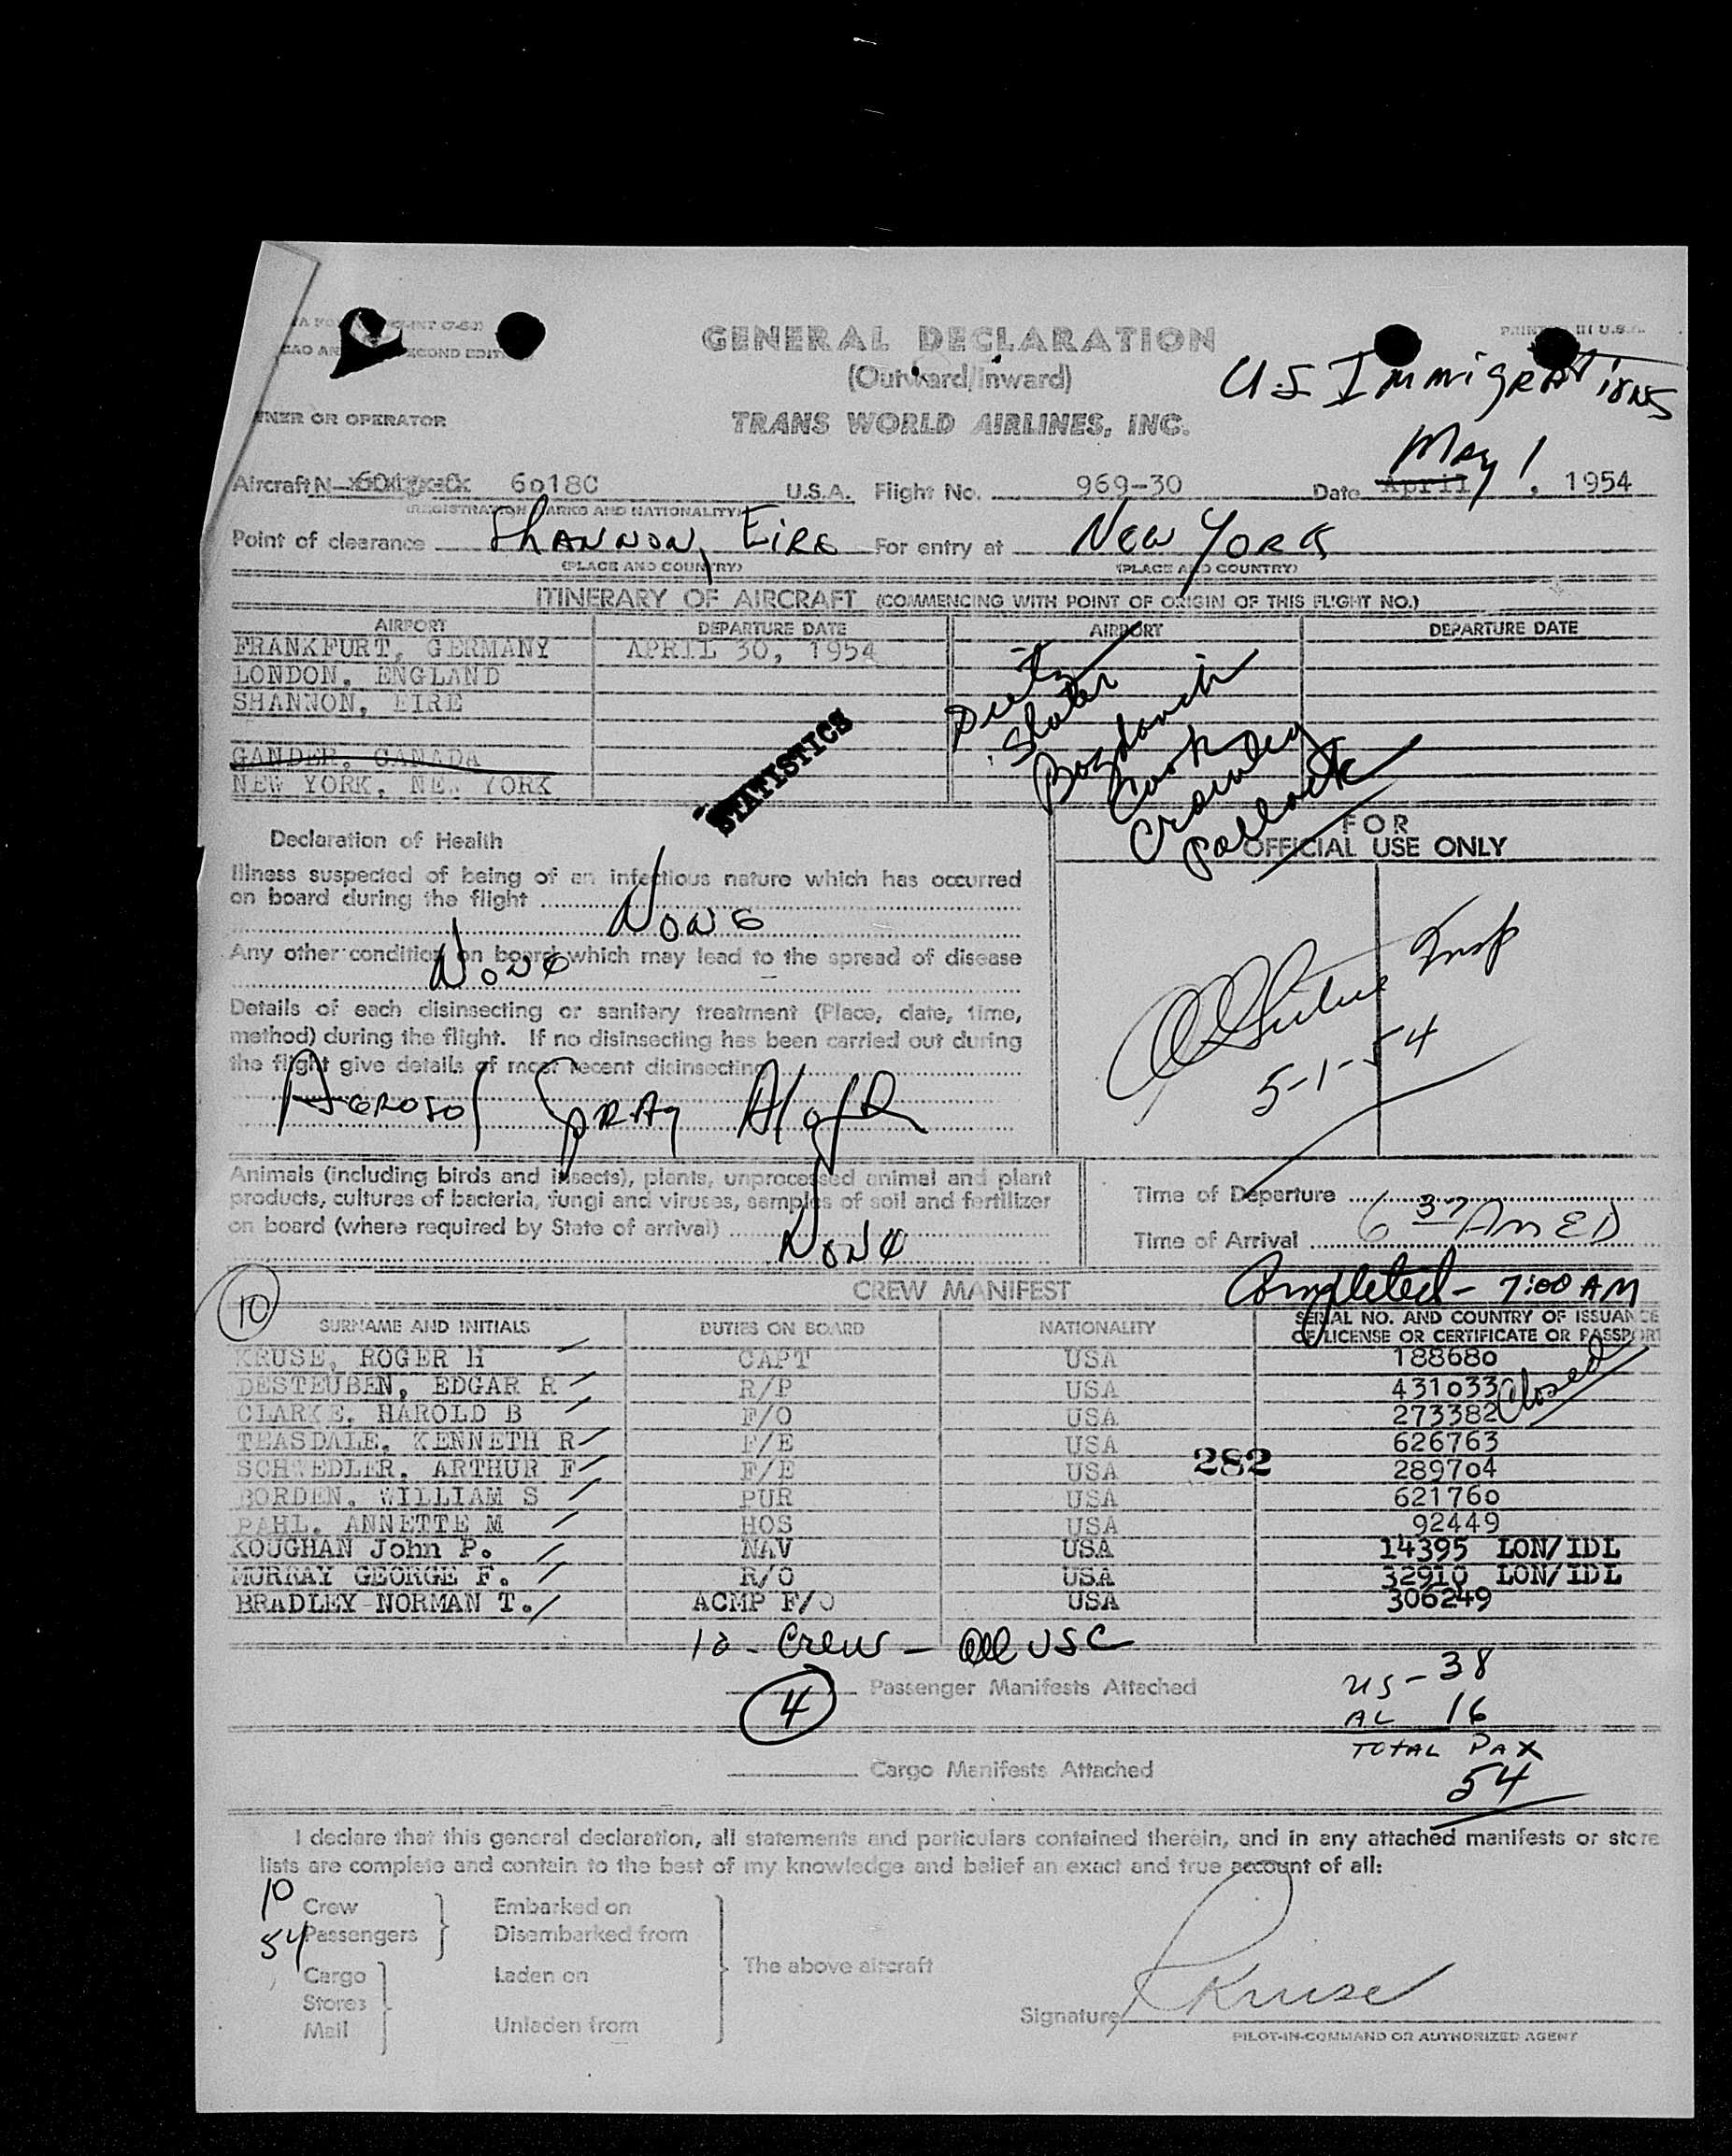 GENERAL DECLARATION
(Outward/Inward)
U.S Immigrations
OWNER OR OPERATOR
TRANS WORLD AIRLINES, INC.
May 1
Aircraft N- 6018C U.S.A. Flight No. 969-30 Date April, 1954
(REGISTRATION MARKS AND NATIONALITY)
Point of clearance Shannon, Eire For entry at New York
(PLACE AND COUNTRY) (PLACE AND COUNTRY)
ITINERARY OF AIRCRAFT (COMMENCING WITH POINT OF ORIGIN OF THIS FLIGHT NO.)
AIRPORT DEPARTURE DATE AIRPORT DEPARTURE DATE
FRANKFURT, GERMANY APRIL 30, 1954
LONDON, ENGLAND
SHANNON, EIRE
GANDER, CANADA
NEW YORK, NEW YORK
STATISTICS
Slater
Cook
Crowley
Pollock
Declaration of Health
FOR
OFFICIAL USE ONLY
Illness suspected of being of an infectious nature which has occurred
on board during the flight
None
Any other condition on board which may lead to the spread of disease
None
Details of each disinsecting or sanitary treatment (Place, date, time,
method) during the flight. If no disinsecting has been carried out during
the flight give details of most recent disinsecting
Aerosol Spray
Insp
5-1-54
Animals (including birds and insects), plants, unprocessed animal and plant
products, cultures of bacteria, fungi and viruses, samples of soil and fertilizer
on board (where required by State of arrival)
None
Time of Departure
Time of Arrival 6 37 AM ED
10
CREW MANIFEST
Completed - 7:00 AM
SURNAME AND INITIALS DUTIES ON BOARD NATIONALITY SERIAL NO. AND COUNTRY OF ISSUANCE
OF LICENSE OR CERTIFICATE OR PASSPORT
KRUSE, ROGER H CAPT USA 188680
DESTEUBEN, EDGAR R R/P USA 431033
Closed
CLARKE, HAROLD B F/O USA 273382
TEASDALE, KENNETH R F/E USA 626763
282
SCHWEDLER, ARTHUR F F/E USA 289704
BORDEN, WILLIAM S PUR USA 621760
PAHL, ANNETTE M HOS USA 92449
KOUGHAN John P. NAV USA 14395 LON/IDL
MURRAY GEORGE F. R/O USA 32910 LON/IDL
BRADLEY NORMAN T. ACMP F/O USA 306249
10 - Crew - All USC
4 Passenger Manifests Attached
US - 38
AL 16
TOTAL PAX
54
Cargo Manifests Attached
I declare that this general declaration, all statements and particulars contained therein, and in any attached manifests or store
lists are complete and contain to the best of my knowledge and belief an exact and true account of all:
10 Crew Embarked on
54 Passengers Disembarked from
The above aircraft
Cargo Laden on
Stores
Mail Unladen from
Signature RKruse
PILOT-IN-COMMAND OR AUTHORIZED AGENT